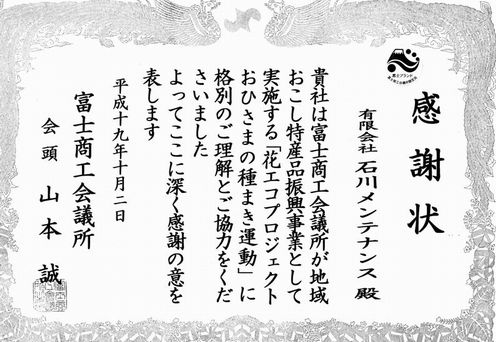 感謝状
富士ブランド
有限会社 石川メンテナンス 殿
貴社は富士商工会議所が地域
おこし特産品振興事業として
実施する「花エコプロジェクト
おひさまの種まき運動」に
格別のご理解とご協力をくだ
さいました
よってここに深く感謝の意を
表します
平成十九年十月二日
富士商工会議所
会頭 山本 誠